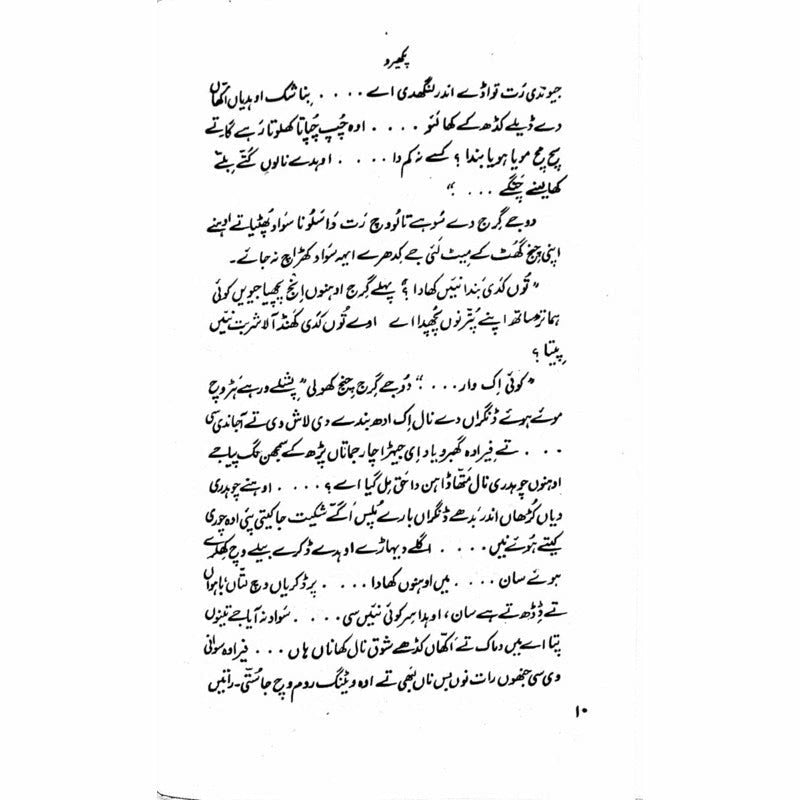 پکھیرو
جیوندی رَت تواڈے اندر لنگھدی اے . . . . بِنا شک اوہدیاں اکھّاں
دے ڈیلے کڈھ کے کھا لئو . . . . اوہ چُپ چُپاتا کھلوتا رہے گا تے
سچ مچ مویا ہویا بندا ؟ کسے نہ کم دا . . . . اوہدے نالوں کُتّے بِلّے
کھا لینے چنگے . . . . “
دوجے گِرج دے سُوہے تالُو وچ رَت دا سَلونا سواد پھُٹیا تے اوہنے
اپنی چِنج گھُٹ کے مِیٹ لئی جے کِدھرے ایہہ سواد کھڑاچ نہ جائے۔
”تُوں کدی بندا نئیں کھادا ؟“ پہلے گِرج اوہنوں اِنج پچھیا جیویں کوئی
ہماتڑ ساتھ اپنے پُتر نوں پُچھدا اے اوے تُوں کدی کھنڈ آلا شربت نئیں
پِیتا ؟
”کوئی اِک وار . . . .“ دُوجے گِرج چِنج کھولی ”پِشلے ورہے ہڑ وچ
موئے ہوئے ڈنگراں دے نال اِک ادھ بندے دی لاش وی تے آ جاندی سی
. . . تے فیر اوہ گھبرو یاد اِی جیہڑا چار جماتاں پڑھ کے سمجھن لگ پیا جے
اوہنوں چوہدری نال مَتھا ڈاہن دا حق مِل گیا اے ؟ . . . . اوہنے چوہدری
دیاں کُڑھاں اندر بَدھے ڈنگراں بارے پُلس اَگے شکیت جا کیتی پئی اوہ چوری
کیتے ہوئے نیں . . . . اگلے دیہاڑے اوہدے ڈکرے بیلے وچ کھِلرے
ہوئے سان . . . . میں اوہنوں کھادا . . . . پر ڈکریاں وچ لتّاں، باہواں
تے ڈِڈھ تے ہے سان، اوہدا سِر کوئی نئیں سی . . . . سواد نہ آیا جے تینوں
پتا اے میں دماک تے اکھّاں کڈھے شوق نال کھاناں ہاں . . . فیر اوہ سوانی
وی سی جنھوں رات نوں بس ناں لَبھی تے اوہ ویٹنگ روم وچ جا سُتّی۔ راتیں
۱۰